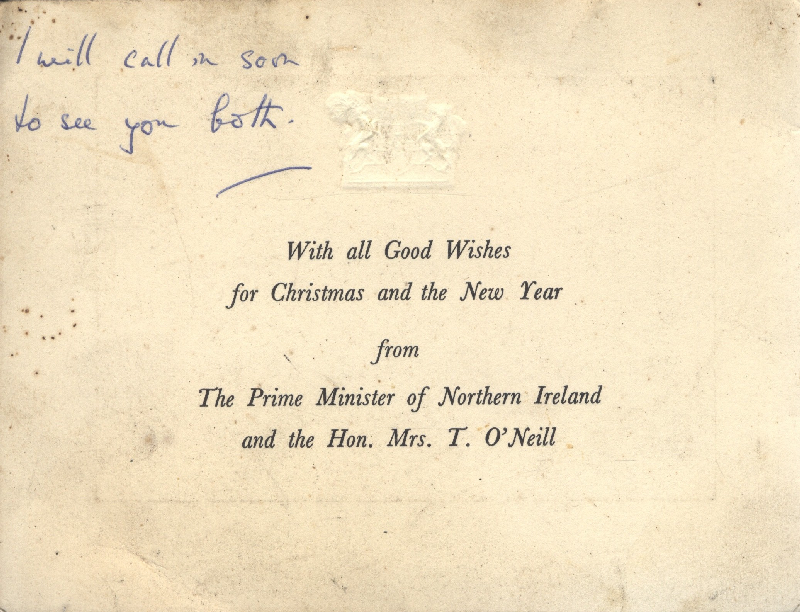 I will call in soon
to see you both.
With all Good Wishes
for Christmas and the New Year
from
The Prime Minister of Northern Ireland
and the Hon. Mrs. T. O'Neill